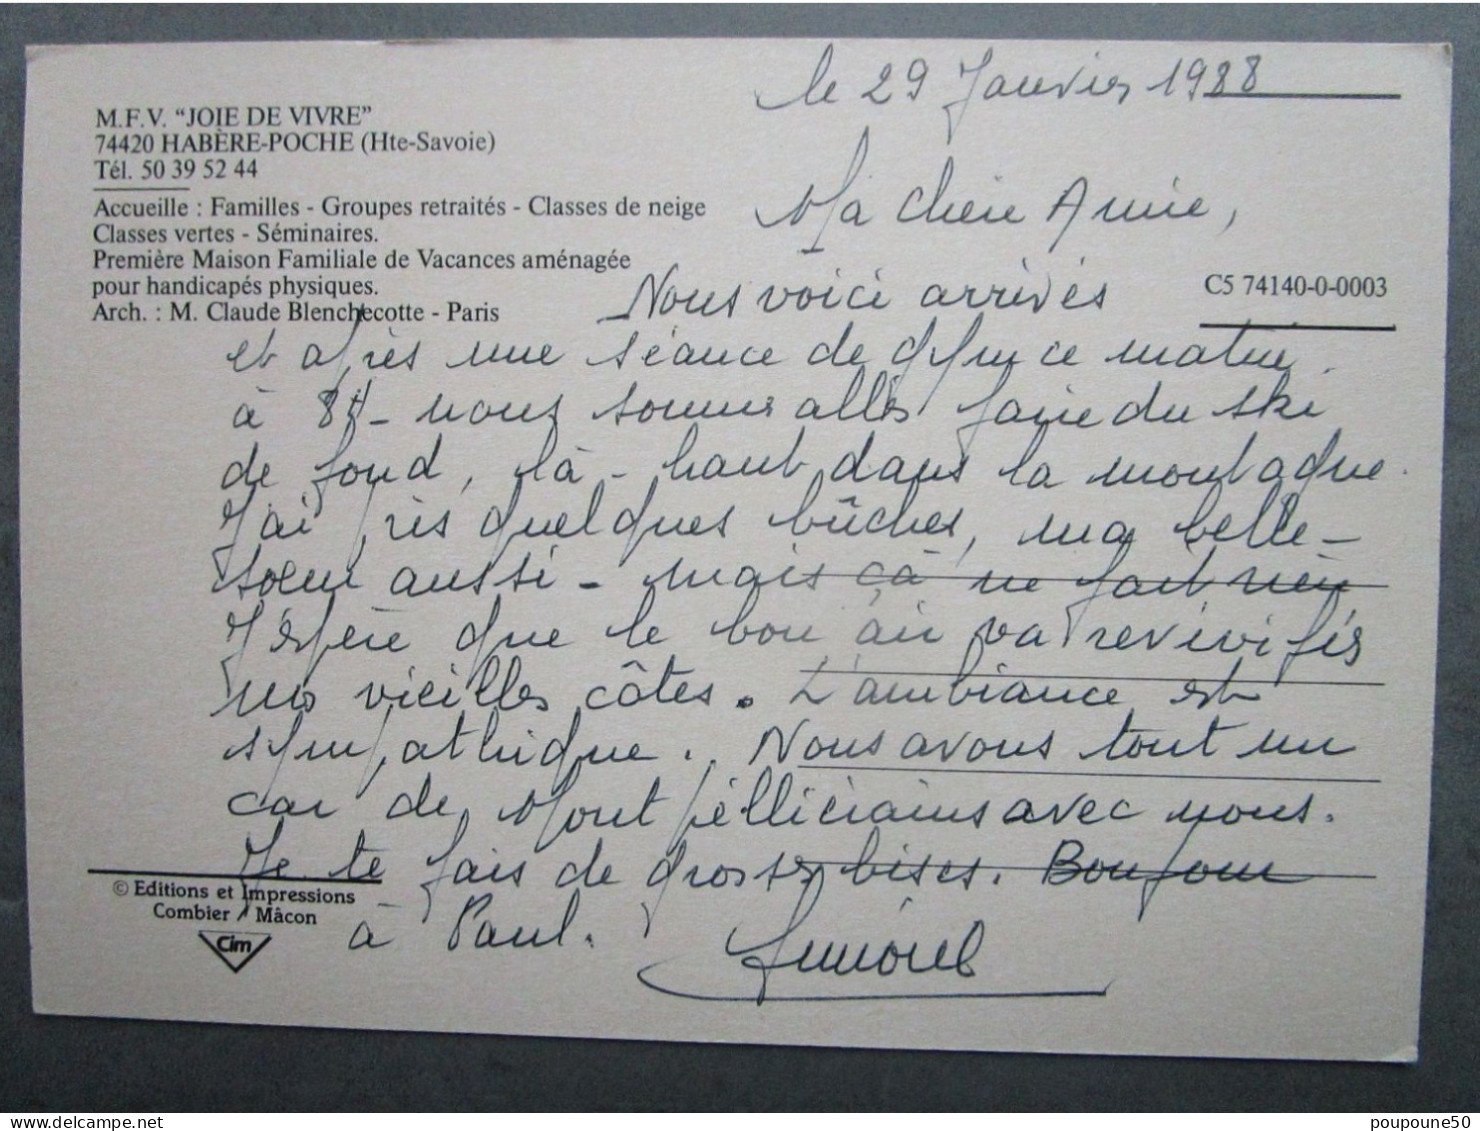 le 29 Janvier 1988
M.F.V. "JOIE DE VIVRE"
74420 HABÈRE-POCHE (Hte-Savoie)
Tél. 50 39 52 44
Accueille : Familles - Groupes retraités - Classes de neige
Classes vertes - Séminaires.
Première Maison Familiale de Vacances aménagée
pour handicapés physiques.
Arch. : M. Claude Blenchecotte - Paris
C5 74140-0-0003
Ma chère Annie,
Nous voici arrivés
et après une séance de gym ce matin
à 8H - nous sommes allés faire du ski
de fond, là-haut dans la montagne.
J'ai pris quelques bûches, ma belle-
soeur aussi - mais çà ne fait rien
J'espère que le bon air va revivifier
nos vieilles côtes. L'ambiance est
sympathique. Nous avons tout un
car de Montpelliérains avec nous.
Je te fais de grosses bises. Bonjour
à Paul.
© Editions et Impressions
Combier Mâcon
Cim
poupoune50